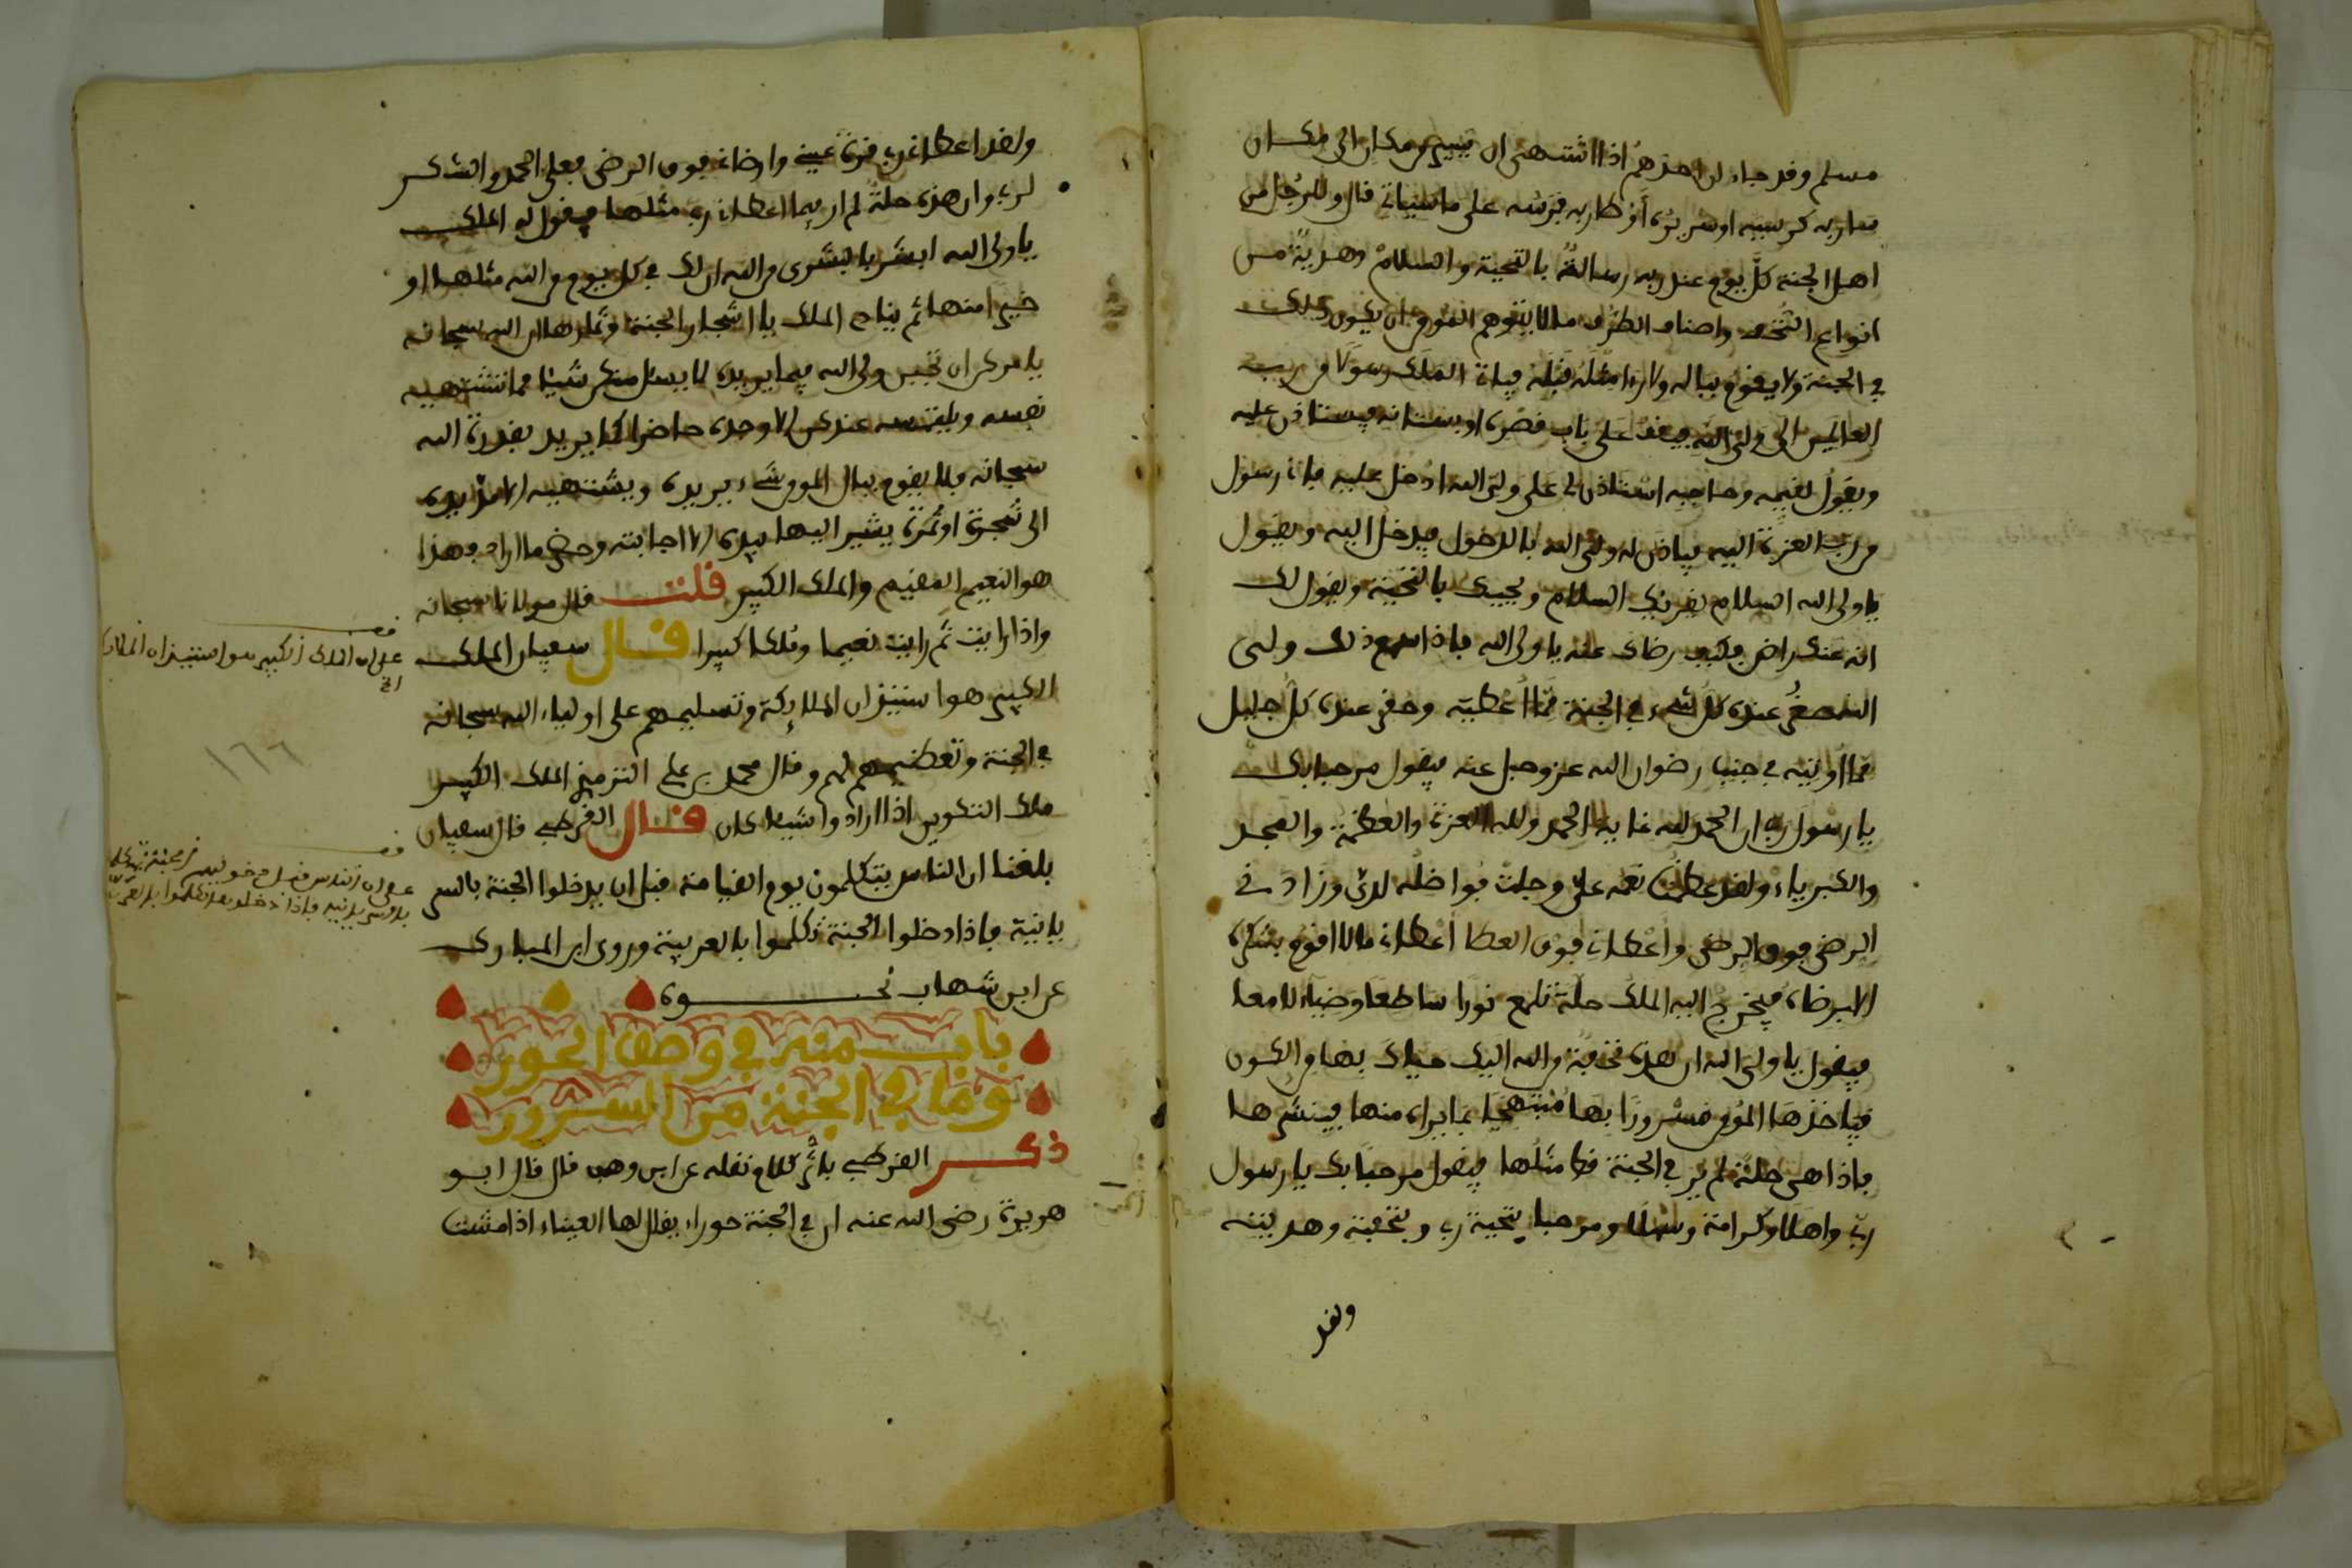 مسلم وقد جاء ان احدهم اذا اشتهى ان يسير من مكان الى مكان
سار به كرسيه او سريره أو طار به فرسه على ما شياه قال وللرجل من
اهل الجنة كل يوم عند ربه رسالة بالتحية والسلام وهدية من
انواع التحف واصناف الطرف ما لا يتوهم المومن ان يكون ذلك
في الجنة ولا يقوم بباله ولا رءا مثله قبله فياتى الملك رسولا من رب
العالمين الى ولى الله فيقف على باب قصره او بستانه فيستاذن عليه
ويقول لقيمه وحاجبه استاذن لى على ولى الله ادخل عليه فانى رسول
من رب العزة اليه فياذن له ولى الله بالدخول فيدخل اليه ويقول
يا ولى الله السلام يقريك السلام ويحييك بالتحية ويقول لك
انه عنك راض فكيف رضاك عنه يا ولى الله فاذا سمع ذلك ولى
الله صغر عنده كل شىء في الجنة مما أعطيه وحقر عنده كل جليل
مما أوتيه في جنب رضوان الله عز وجل عنه فيقول مرحبا بك
يا رسول ربى ان الحمد لله غاية الحمد ولله العزة والعظمة والمجد
والكبرياء ولقد عظمت نعمه على وجلت فواضله لدى وزادنى
الرضى فوق الرضى وأعطانى فوق العطا أعطانى ما لا اقوم بشكره
الا برضاه فيخرج اليه الملك حلة تلمع نورا ساطعا وضياء لامعا
فيقول يا ولى الله ان هذه تحفة من الله اليك حياك بها من الكون
فياخذها المومن مسرورا بها مبتهجا بما يراه منها فينشرها
فاذا هى حلة لم ير في الجنة قط مثلها فيقول مرحبا بك يا رسول
ربى واهلا وكرامة وسهلا ومرحبا بتحية ربى وبتحفته وهديته
ولقد
ولقد اعطانى ربى قرة عينى وارضانى فوق الرضى فعلى الحمد والشكر
لربى وان هذه حلة لم ار فيما اعطانى ربى مثلها فيقول له الملك
يا ولى الله ابشر بالبشرى من الله ان لك في كل يوم من الله مثلها او
خيرا منها ثم يناد الملك يا اشجار الجنة وثمارها ان الله سبحانه
يامركن ان تجبن ولى الله فيما يريده لا يسئل منكن شيئا مما تشتهيه
نفسه ويلتمسه عندكن الا وجده حاضرا كما يريد بقدرة الله
سبحانه فلا يقوم ببال المومن شىء يريده ويشتهيه الا مد يده
الى شجرة او ثمرة يشير اليها بيده الا اجابته وحضر ما اراد فهذا
هو النعيم المقيم والملك الكبير قلت قال مولانا سبحانه
واذا رايت ثم رايت نعيما وملكا كبيرا قال سفيان الملك
الكبير هو استيذان الملايكة وتسليمهم على اولياء الله سبحانه
في الجنة وتعظيمهم لهم وقال محمد بن على الترمذى الملك الكبير
ملك التكوين اذا ارادوا شيئا كان قال القرطبى قال سفيان
بلغنا ان الناس يتكلمون يوم القيامة قبل ان يدخلوا الجنة بالسر
يانية فاذا دخلوا الجنة تكلموا بالعربية وروى ابن المبارك
عن ابن شهاب نحوه
باب منه في وصف الحور
وما في الجنة من السرور
ذكر القرطبى باثر كلام نقله عن ابن وهب قال قال ابو
هريرة رضى الله عنه ان في الجنة حوراء يقال لها العيناء اذا مشت
قف
على ان الملك الكبير هو استيذان الملايكة
الخ
١٦٦
قف
على ان الناس قبل دخولهم الجنة يتكلمون
بالسريانية فاذا دخلوها تكلموا بالعربية